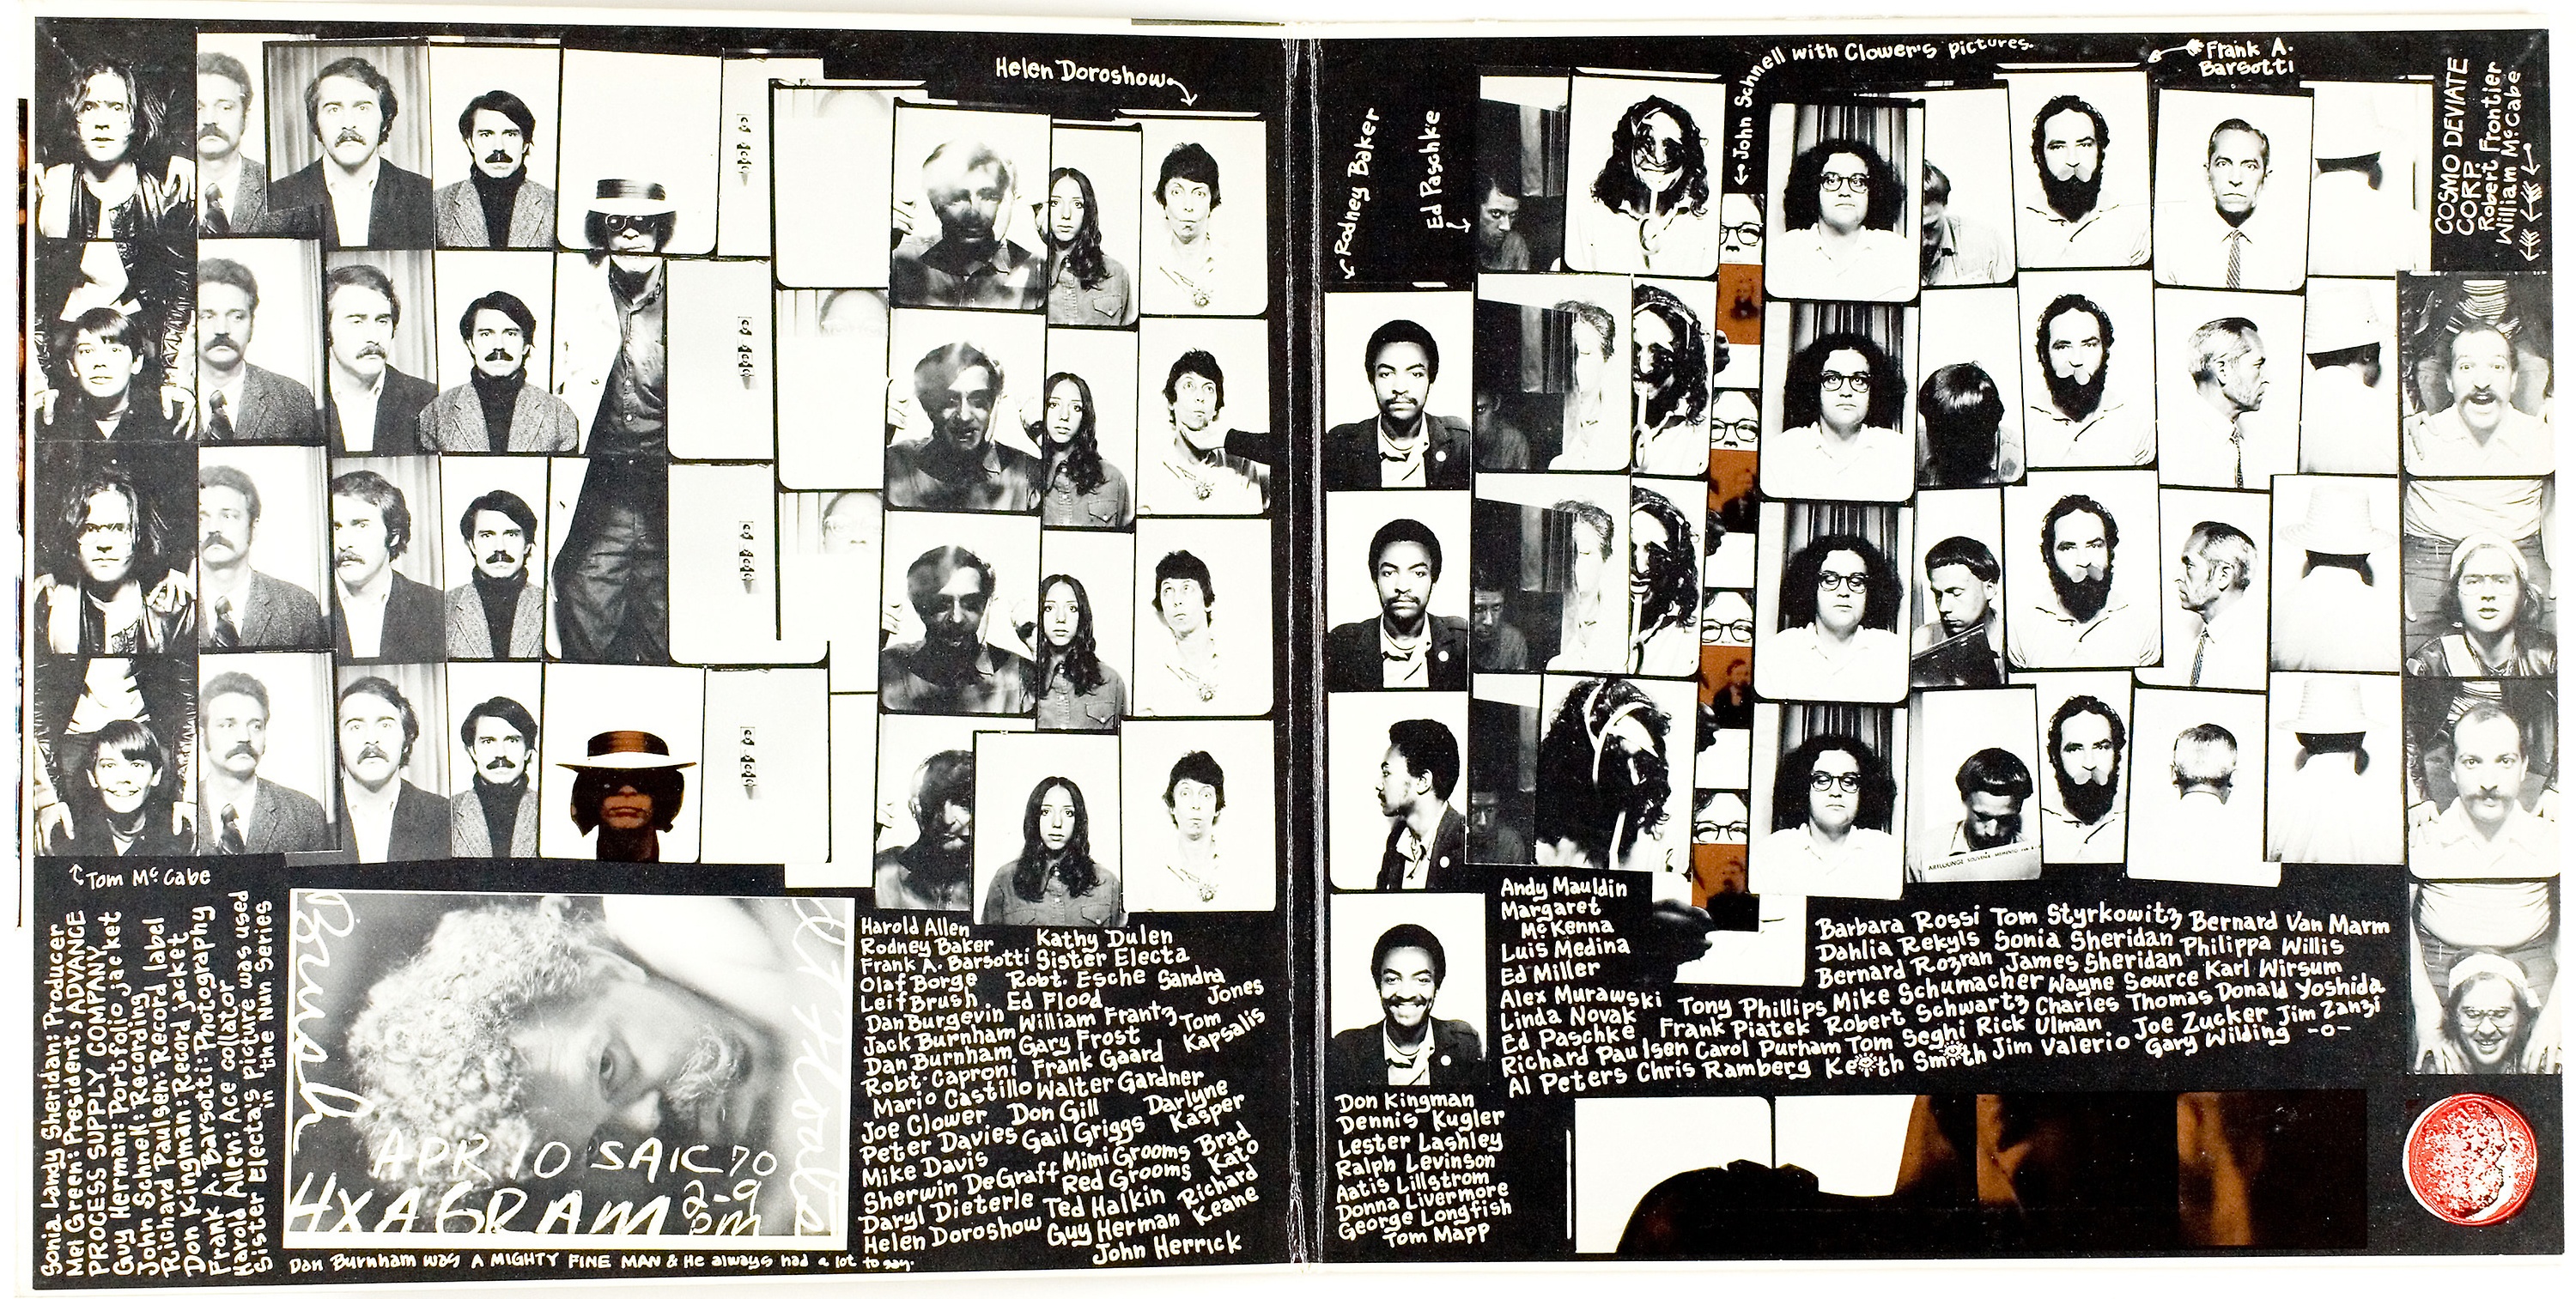 Helen Doroshow
Tom McCabe
Sonia Landy Sheridan: Producer
Mel Green: President, ADVANCE
PROCESS SUPPLY COMPANY
Guy Herman: Portfolio jacket
John Schnell: Recording
Richard Paulsen: Record label
Don Kingman: Record jacket
Frank A. Barsotti: Photography
Harold Allen: Ace collator
Sister Electa's Picture was used
in the Nun Series
Brush
APR 10 SAIC 70
HXAGRAM 2-9
pm
Dan Burnham was A MIGHTY FINE MAN & He always had a lot to say.
Harold Allen
Rodney Baker Kathy Dulen
Frank A. Barsotti Sister Electa
Olaf Borge Robt. Esche Sandra
Leif Brush. Ed Flood Jones
Dan Burgevin William Frantz Tom
Jack Burnham Gary Frost Kapsalis
Dan Burnham Frank Gaard
Robt. Caproni Walter Gardner
Mario Castillo Don Gill Darlyne
Joe Clower Gail Griggs Kasper
Peter Davies Mimi Grooms Brad
Mike Davis Red Grooms Kato
Sherwin DeGraff Ted Halkin Richard
Daryl Dieterle Guy Herman Keane
Helen Doroshow John Herrick
Rodney Baker
Ed Paschke
John Schnell with Clower's pictures.
Frank A.
Barsotti
COSMO DEVIATE
CORP.
Robert Frontier
William McCabe
ARTLOUNGE SOUVENIR MEMENTO
Andy Mauldin
Margaret
McKenna
Luis Medina
Ed Miller
Alex Murawski
Linda Novak
Ed Paschke
Richard Paulsen
Al Peters
Tony Phillips
Frank Piatek
Carol Purham
Chris Ramberg
Barbara Rossi Tom Styrkowitz Bernard Van Marm
Dahlia Rekyls Sonia Sheridan Philippa Willis
Bernard Rozran James Sheridan Karl Wirsum
Mike Schumacher Wayne Source Donald Yoshida
Robert Schwartz Charles Thomas Jim Zanzi
Tom Seghi Rick Ulman Joe Zucker -o-
Keith Smith Jim Valerio Gary Wilding
Don Kingman
Dennis Kugler
Lester Lashley
Ralph Levinson
Aatis Lillstrom
Donna Livermore
George Longfish
Tom Mapp